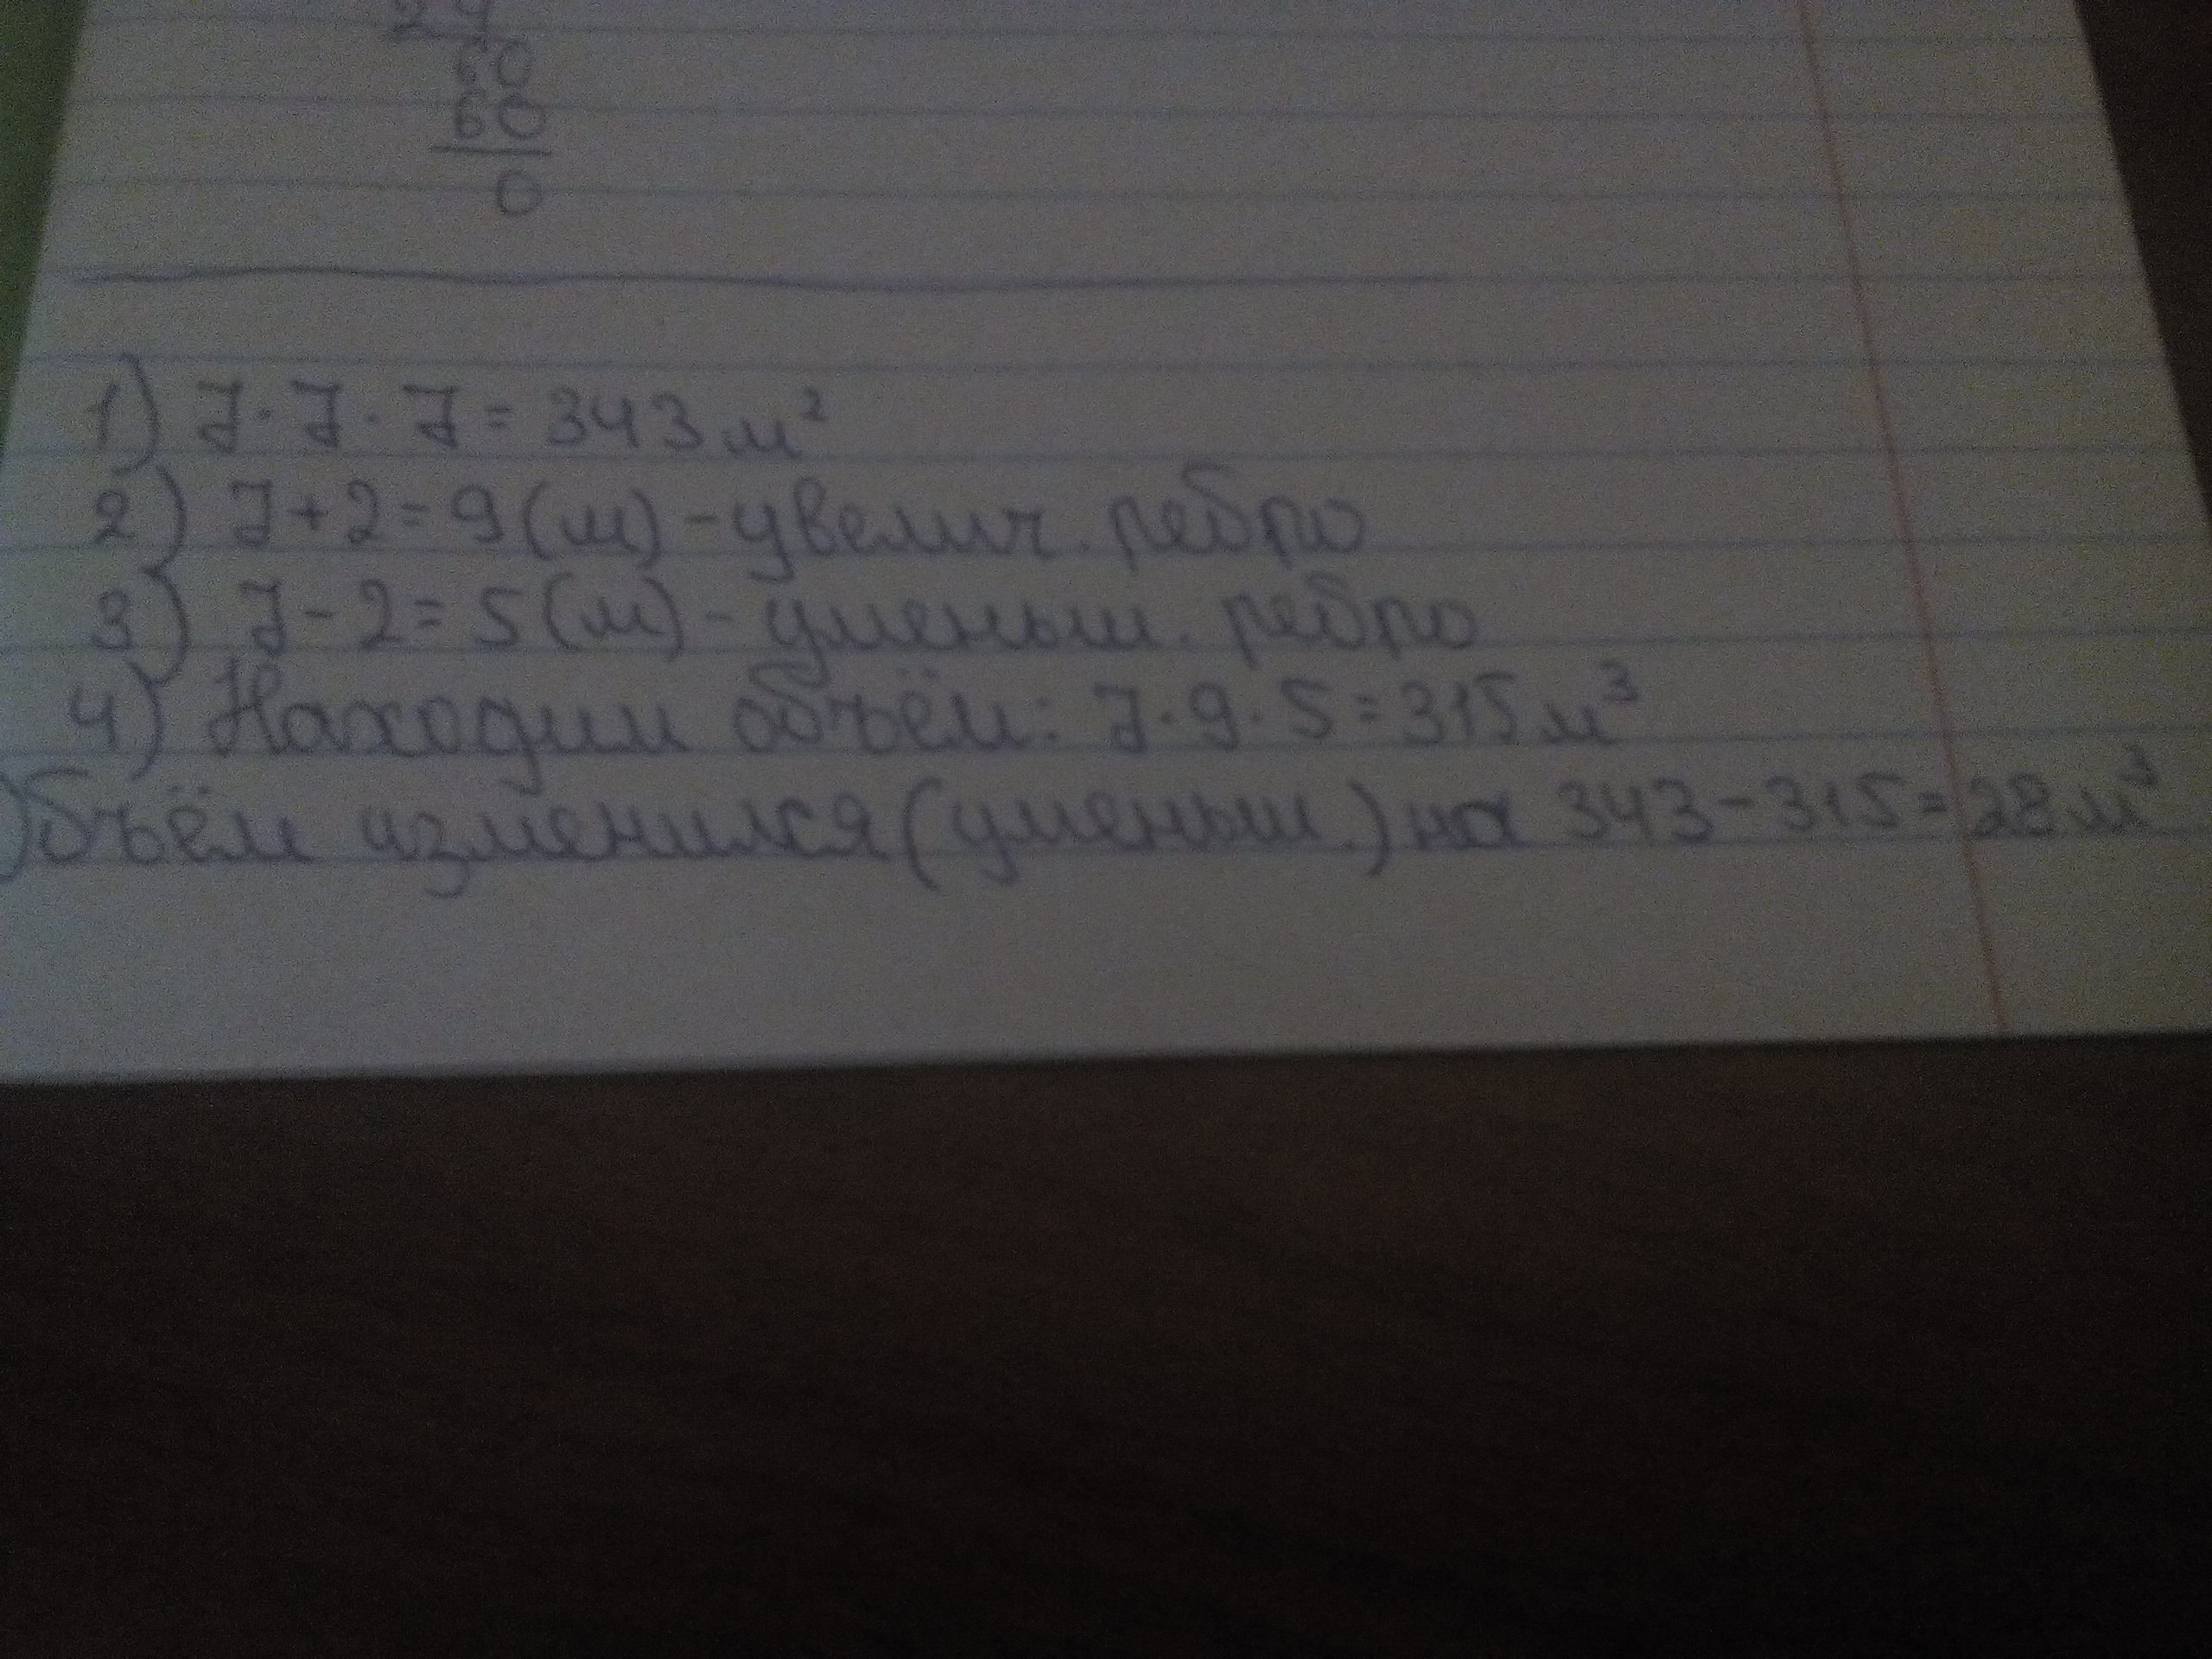 24
60
60
0
1) 7·7·7=343м²
2) 7+2=9(м)-увелич. ребро
3) 7-2=5(м)-уменьш. ребро
4) Находим объём: 7·9·5=315м³
Объём изменился(уменьш.) на 343-315=28м³